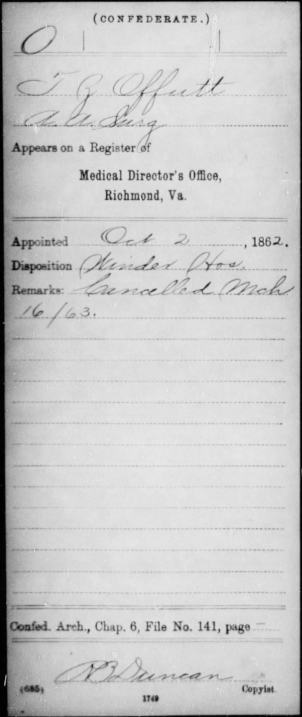 (CONFEDERATE.)
O
T Z Offutt
A. A. Surg
Appears on a Register of
Medical Director's Office,
Richmond, Va.
Appointed Oct 2, 1862.
Disposition Winder Hos.
Remarks: Cancelled Mch
16/63.
Confed. Arch., Chap. 6, File No. 141, page
R B Duncan
(685) Copyist.
1749